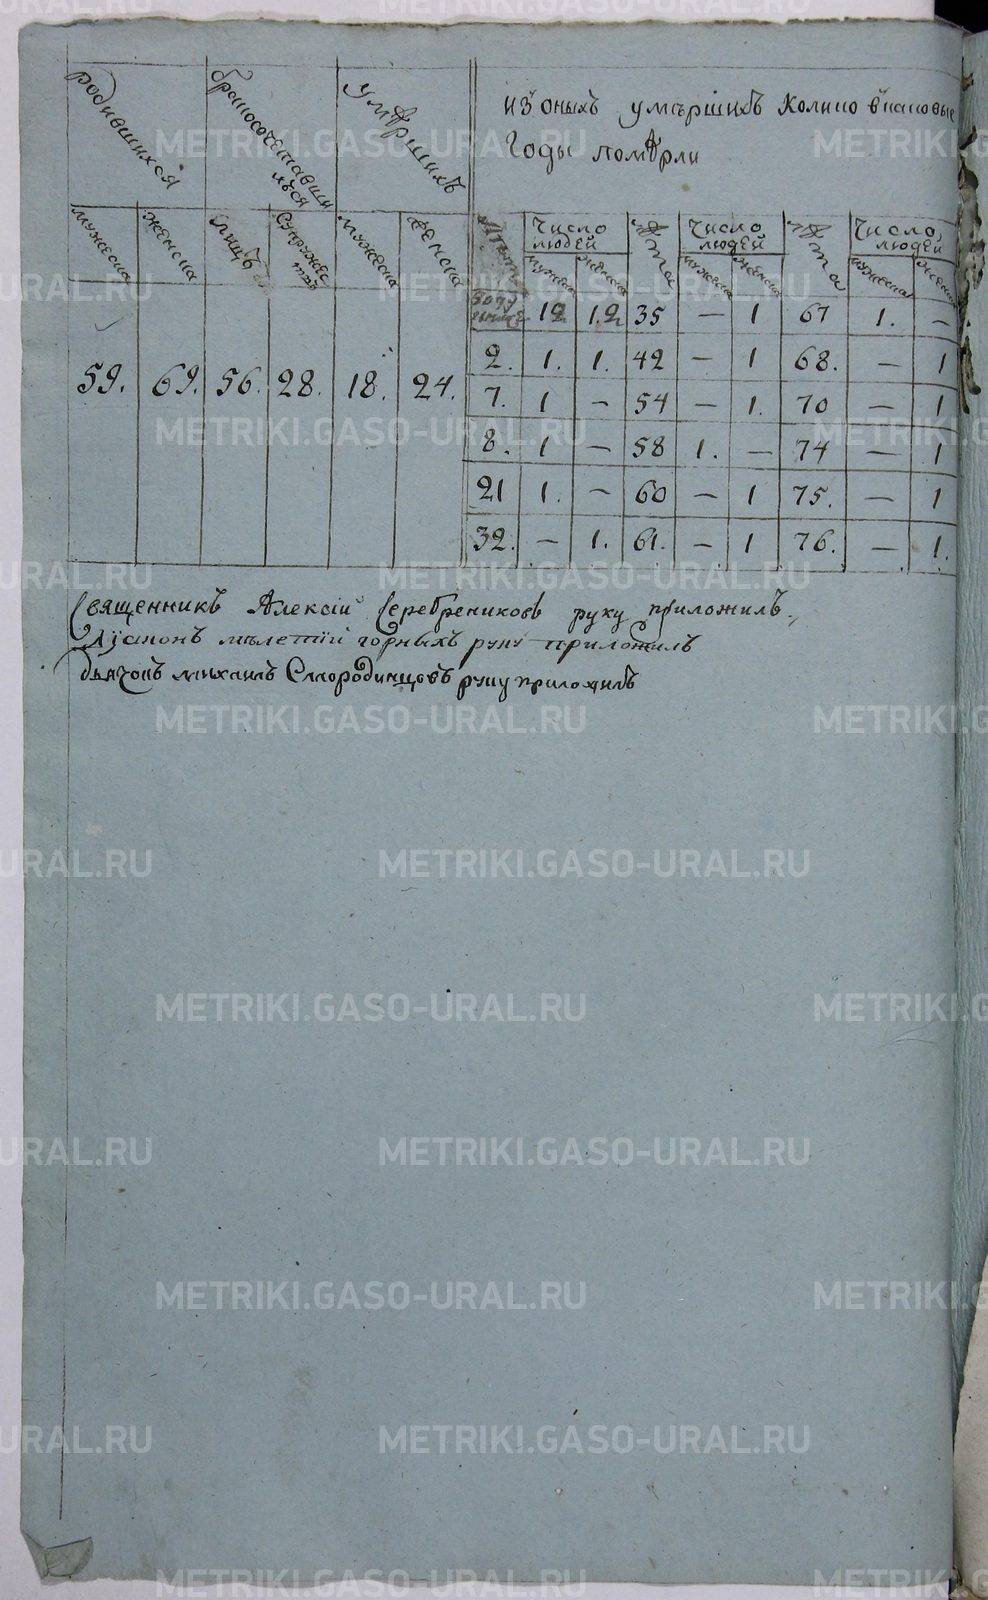 родившихся браκосочетавши умѣршихъ изъ оныхъ умѣршихъ колико вкаковые
хъся годы помѣрли
мужеска женска лицъ супружес мужеска женска число людей лѣта число людей лѣта число людей
твъ мужеска женска мужеска женска мужеска женска
году 12 1.2 35 — 1 67 1. —
2. 1. 1. 42 — 1 68. — 1
59. 69. 56. 28. 18. 24. 7. 1 — 54 — 1. 70 — 1
8. 1 — 58 1. — 74 — 1
21 1. — 60 — 1 75. — 1
32. — 1. 61. — 1 76. — 1.
Священникъ Алексій Серебрениковъ руку приложилъ.
Діаконъ мѣлетій горныхъ руку приложилъ
Дьячокъ михаилъ Смородинцовъ руку приложилъ
METRIKI.GASO-URAL.RU